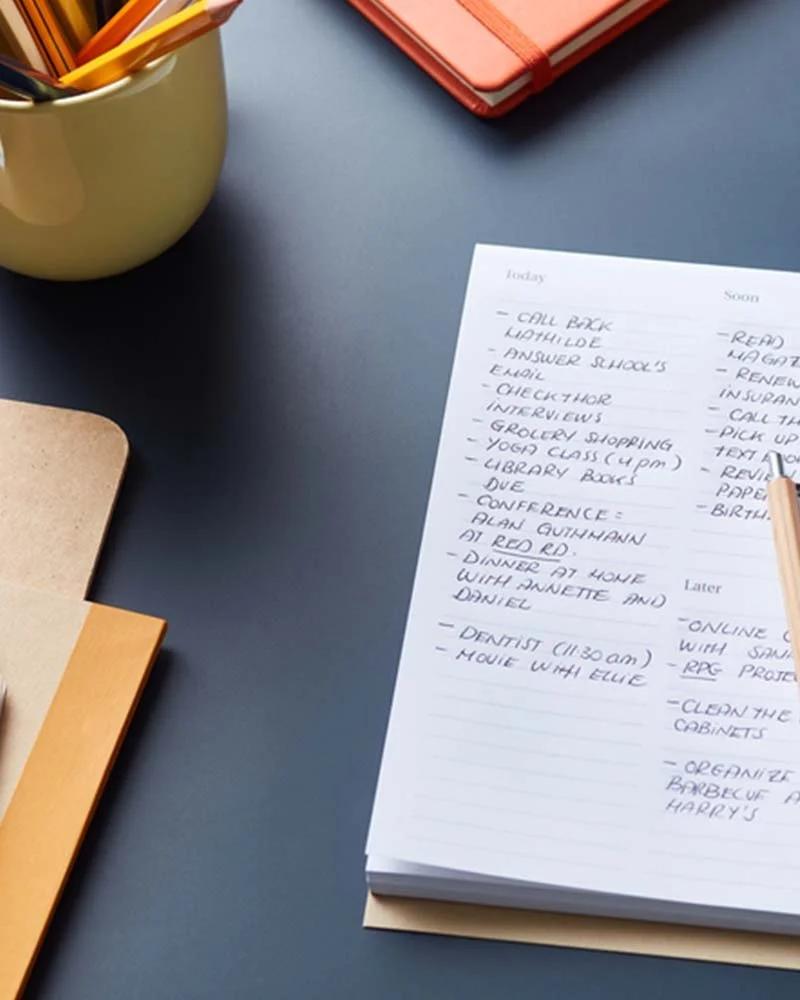 Today
- CALL BACK
MATHILDE
- ANSWER SCHOOL'S
EMAIL
- CHECK THOR
INTERVIEWS
- GROCERY SHOPPING
- YOGA CLASS (4 pm)
- LIBRARY BOOKS
DUE
- CONFERENCE:
ALAN GUTHMANN
AT RED RD.
- DINNER AT HOME
WITH ANNETTE AND
DANIEL
- DENTIST (11:30 am)
- MOVIE WITH ELLIE
Soon
- READ
- RENEW
- CALL
- PICK UP
TEXT
Later
- ONLINE
WITH
- RPG
- CLEAN THE
CABINETS
- ORGANIZE
BARBECUE
HARRY'S